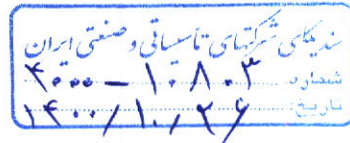 سندیکای شرکتهای تاسیساتی و صنعتی ایران
شماره: ۴۰۰۰ - ۱۰۸۰۳
تاریخ: ۱۴۰۰/۱۰/۲۶